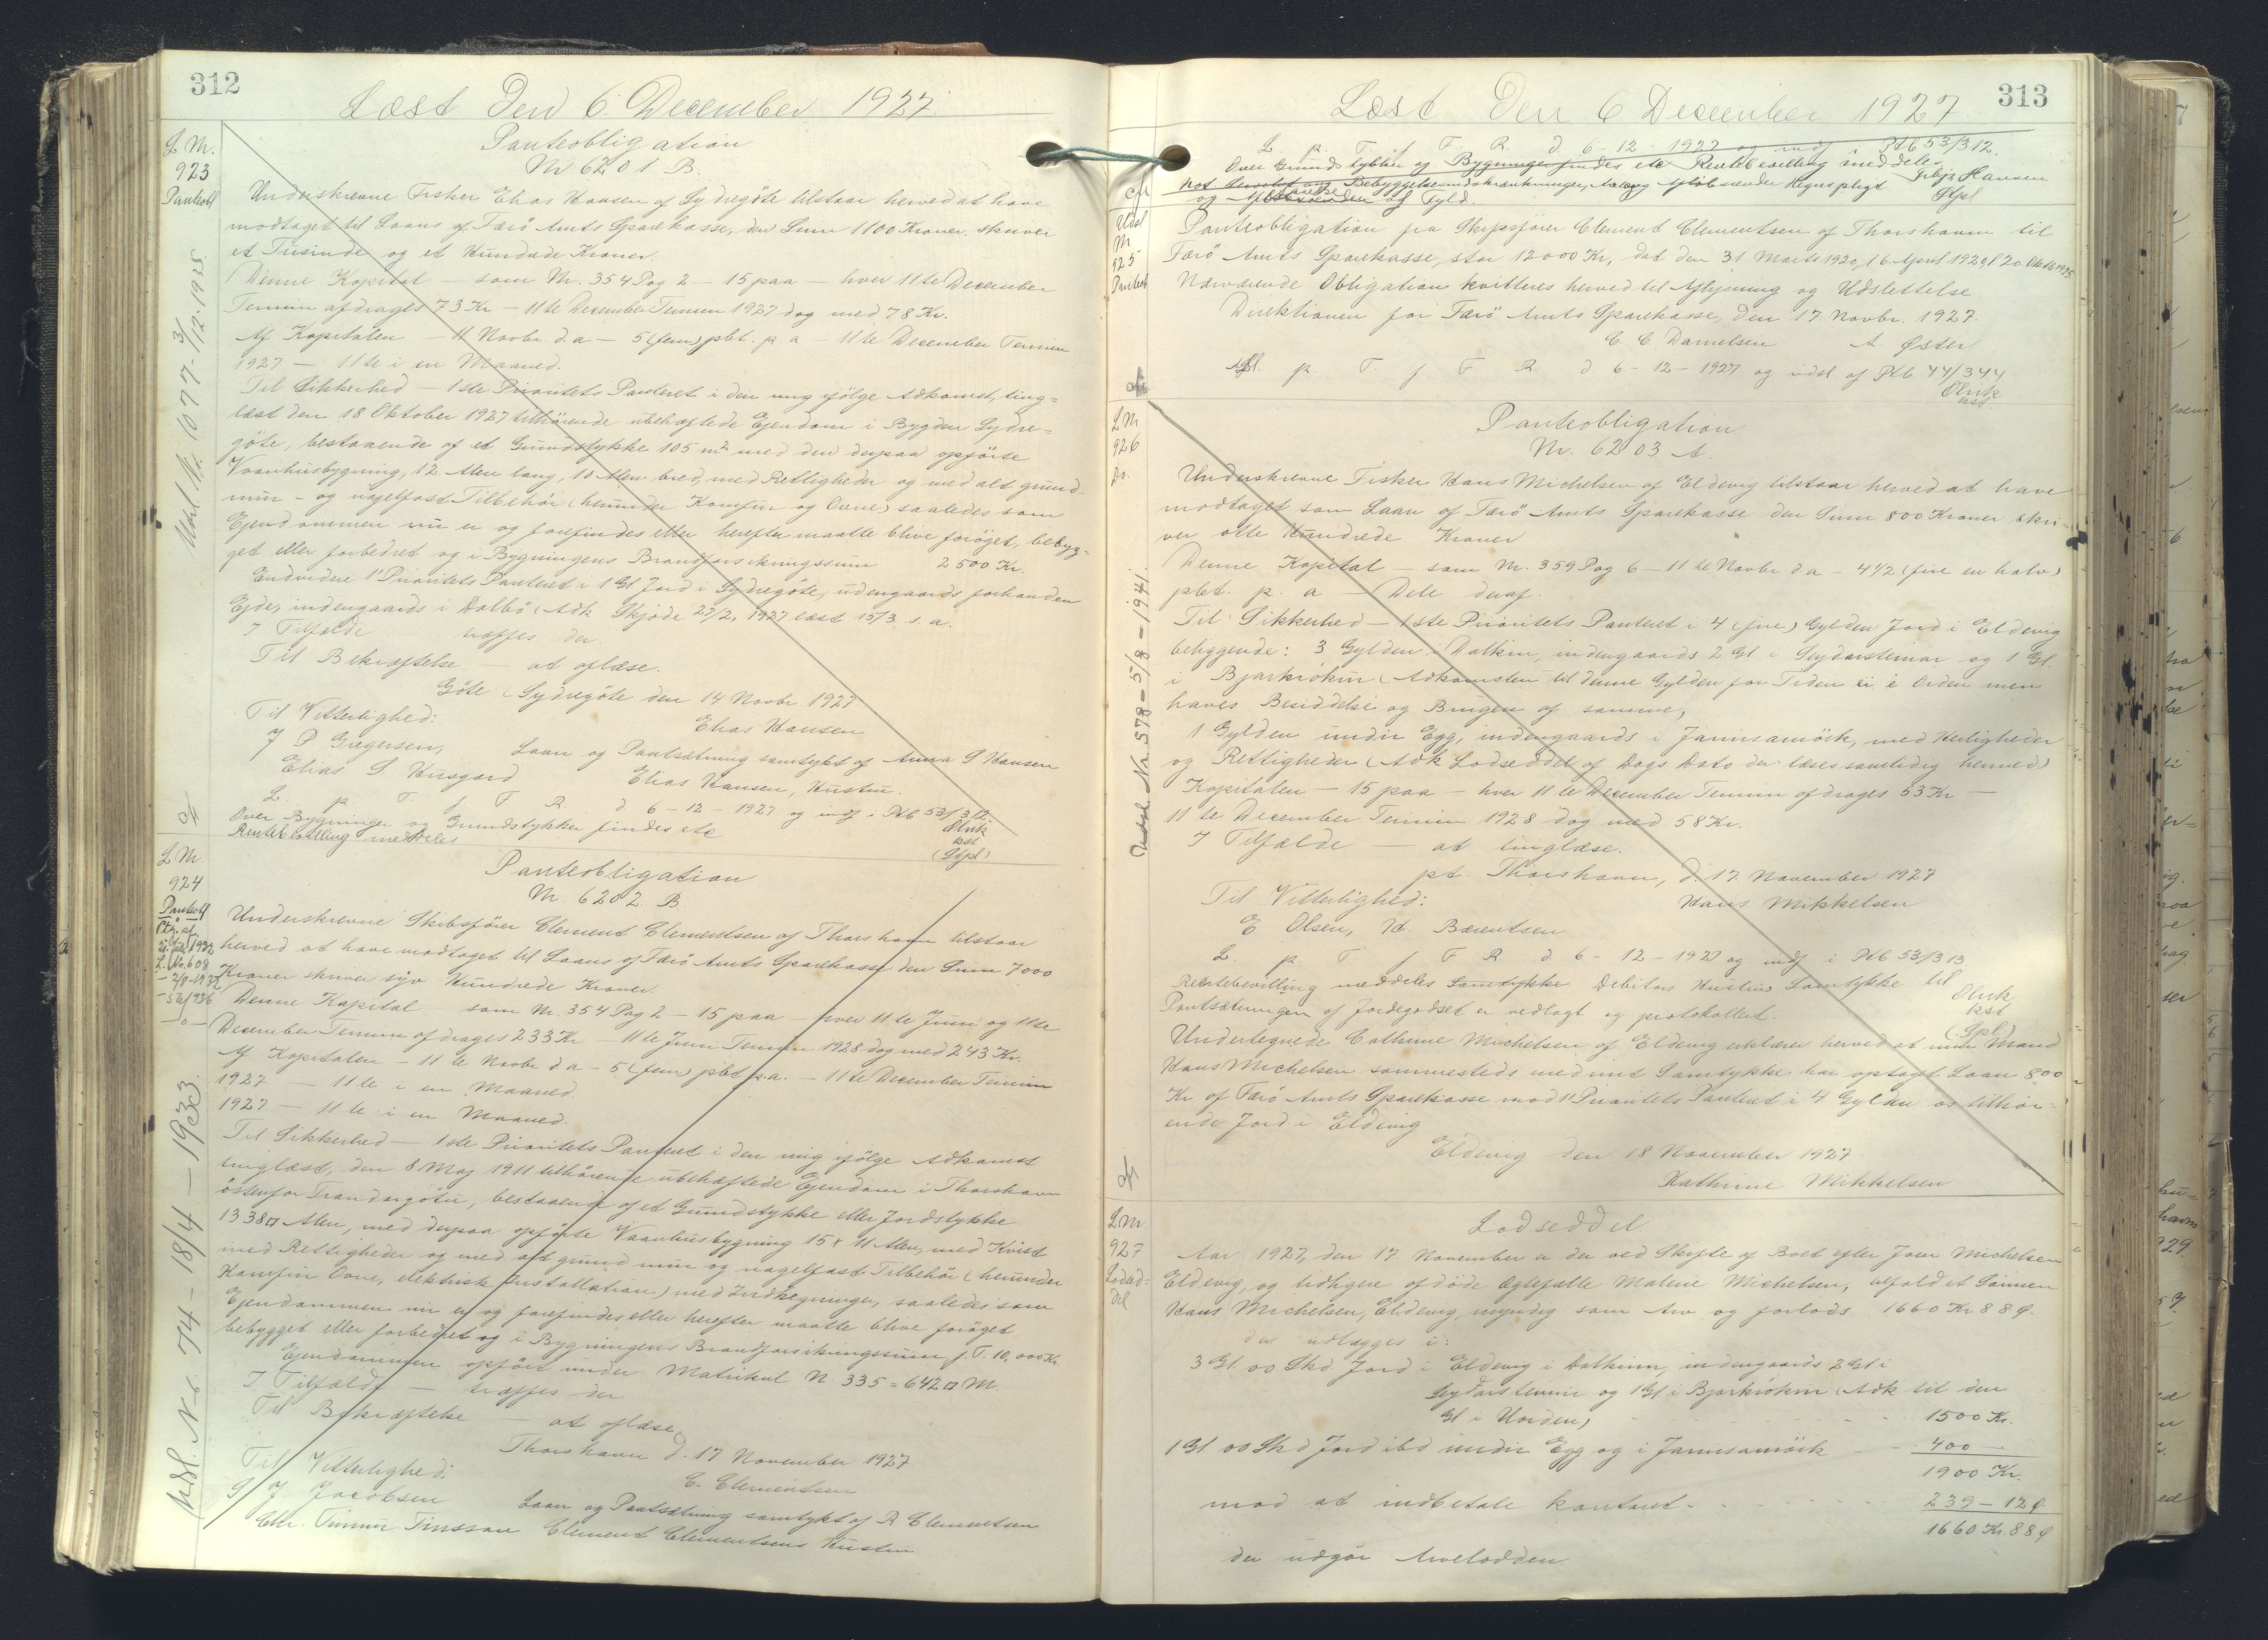 312
Læst Den 6. December 1927.
L. Nr.
923
Panteobl
Panteobligation
Nr. 6201 B.
Underskrevne Fisker Elias Hansen af Sydregöte tilstaar herved at have
modtaget til Laans af Færö Amts Sparekasse, den Sum 1100 Kroner skriver
et Tusinde og et Hundrede Kroner.
Denne Kapital - som Nr. 354 Pag 2 - 15 paa - hver 11te December
Termin afdrages 73 Kr - 11te December Termin 1927 dog med 78 Kr.
Af Kapitalen - 11 Novbr. d.a - 5 (fem) pbt. p a - 11te December Termin
1927 - 11te i en Maaned.
Til Sikkerhed - 1ste Prioritets Panteret i den mig ifölge Adkomst, ting=
læst den 18 Oktober 1927 tilhörende ubehæftede Ejendom i Bygden Sydre=
göte, bestaaende af et Grundstykke 105 m² med den derpaa opförte
Vaanhusbygning, 12 Alen lang, 10 Alen bred, med Rettigheder og med alt grund-
mur - og nagelfast Tilbehör (herunder Komfur og Ovne) saaledes som
Ejendommen nu er og forefindes eller herefter maatte blive foröget, bebyg=
get eller forbedret og i Bygningens Brandforsikringssum 2500 Kr.
Endvidere 1' Prioritets Panteret i 1 Gl Jord i Sydregöte, udengaards forhanden
Ejde, indengaards i Dalbö (Adk Skjöde 22/2, 1927 læst 15/3 s. a.
I Tilfælde træffes der.
Til Bekræftelse - at aflæse.
Göte (Sydregöte den 14 Novbr. 1927
Til Vitterlighed:
Elias Hansen
J P Gregersen, Laan og Pantsætning samtykt af Anna S Hansen
Elias S. Husgard Elias Hansen, Hustru.
L. p. T. f. F R. d 6 - 12 - 1927 og indf. i Ptb 53/312.
Over Bygninger og Grundstykker findes etc
Rentebevilling meddeles
(Stpl)
Udsl. Nr. 1077 - 3/12-1935
L Nr.
924
Panteobl
Panteobligation
Nr. 6202 B.
Underskrevne Skibsförer Clement Clementsen af Thorshavn tilstaar
herved at have modtaget til Laans af Færö Amts Sparekasse den Sum 7000
Kroner skriver syv Hundrede Kroner.
Denne Kapital som Nr. 354 Pag 2 - 15 paa - hver 11te Juni og 11te
December Termin afdrages 233 Kr - 11te Juni Termin 1928 dog med 243 Kr.
Af Kapitalen - 11te Novbr d a - 5 (fem) pbt p.a. - 11te December Termin
1927 - 11te i en Maaned
1927 - 11te i en Maaned.
Til Sikkerhed - 1ste Prioritets Panteret i den mig ifölge Adkomst
tinglæst, den 8 Maj 1911 tilhörende ubehæftede Ejendom i Thorshavn
östenfor Trandargötu, bestaaende af et Grundstykke eller Jordstykke
1338 □ Alen, med derpaa opförte Vaanhusbygning 15 x 11 Alen, med Kvist
med Rettigheder og med alt grund mur og nagelfast Tilbehör (herunder
Komfur Ovne, elektrisk Installation) med Indhegninger, saaledes som
Ejendommen nu er og forefindes eller herefter maatte blive foröget
bebygget eller forbedret og i Bygningens Brandforsikringssum f. T. 10,000 Kr.
Ejendommen opfört under Matrikul N. 335 = 642 □ M.
I Tilfælde - træffes der
Til Bekræftelse - at aflæse.
Thorshavn d. 17 November 1927
Til Vitterlighed:
C. Clementsen
S J Jacobsen Laan og Pantsætning samtykt af R Clementsen
Chr. Clement Clementsens Hustru
Udsl. No 74 - 18/4 - 1933
313
Læst Den 6 December 1927
L. p. T. f. F. R. d. 6 - 12 - 1927 og indf Ptb 53/312.
Over Grundstykker og Bygninger findes etc Rentebevilling meddeles
og Fyld.
Stpl
Udsl
Nr
925
Pantbr
Panteobligation fra Skipsförer Clement Clementsen af Thorshavn til
Færö Amts Sparekasse, stor 12000 Kr, dat den 31 Marts 1920, 16 April 1920, 20 Oktb 1925
Nærværende Obligation kvitteres herved til Aflysning og Udslettelse
Direktionen for Færö Amts Sparekasse, den 17 Novbr. 1927.
C. C. Danielsen A Øster
Afl. p. T. f F R. d. 6 - 12 - 1927 og udsl af Ptb 44/344
L Nr
926
Do.
Panteobligation
Nr. 6203 A.
Underskrevne Fisker Hans Michelsen af Eldevig tilstaar herved at have
modtaget som Laan af Færö Amts Sparekasse den Sum 800 Kroner skri=
ver otte Hundrede Kroner
Denne Kapital - som Nr. 359 Pag 6 - 11te Novbr d a - 4 1/2 (fire en halv)
pbt. p. a - Dele deraf.
Til Sikkerhed - 1ste Prioritets Panteret i 4 (fire) Gylden Jord i Eldevig
beliggende: 3 Gylden i Dalkin, indengaards 2 Gl i Seydarsteinar og 1 Gl.
i Bjarkrókin (Adkomsten til denne Gylden for Tiden ei i Orden men
haves Besiddelse og Brugen af samme,
1 Gylden undir Egg, indengaards i Jannsamörk, med Herligheder
og Rettigheder (Adk Lodseddel af Dags Dato der læses samtidig hermed)
Kapitalen - 15 paa - hver 11te December Termin afdrages 53 Kr -
11te December Termin 1928 dog med 58 Kr.
I Tilfælde - at tinglæse.
pt. Thorshavn, d. 17 November 1927
Til Vitterlighed:
Hans Mikkelsen
E Olsen, Kl. Bærentsen
L. p. T f F R. d 6 - 12 - 1927 og indf i Ptb 53/313
Rentebevilling meddeles Samtykke Debitors Hustrus Samtykke til
Pantsætningen af Jordegodset er vedlagt og protokolleret.
(Spl)
Undertegnede Cathrine Michelsen af Eldevig erklærer herved at min Mand
Hans Michelsen sammesteds med mit Samtykke har optaget Laan 800
Kr af Færö Amts Sparekasse mod 1' Prioritets Panteret i 4 Gylden os tilhör-
ende Jord i Eldevig
Eldevig den 18 November 1927
Kathrine Mikkelsen
Udsl. Nr. 578 - 5/8 - 1941.
L nr
927
Lodsed=
del
Lodseddel.
Aar 1927, den 17. November er der ved Skifte af Boet efter Joen Michelsen
Eldevig, og tidligere afdöde Ægtefælle Malene Michelsen, tilfaldet Sönnen
Hans Michelsen, Eldevig, myndig som Arv og forlods 1660 Kr 88 ø.
der udlægges i:
3 Gl. 00 Skd Jord i Eldevig i Dalkinn, indengaards 2 Gl i
Seydarsteinir og 1 Gl i Bjarkrókin (Adk til den
Gl i Uorden) 1500 Kr.
1 Gl 00 Skd Jord ibd undir Egg og i Jannsamörk 400
1900 Kr.
mod at indbetale kontant 239 - 12 ø
1660 Kr. 88 ø
der udgör Arvelodden.